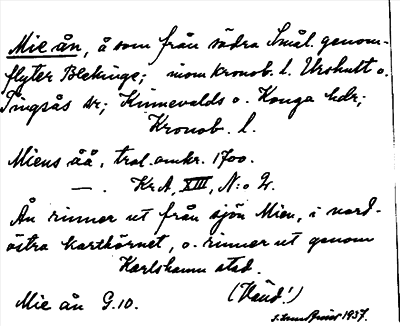 Mie ån, å som från södra Smål. genom-
flyter Blekinge; inom kronob. l. Urshult o.
Tingsås sr; Kinnevalds o. Konga hdr;
Kronob. l.
Miens åå, trol. omkr. 1700.
—. Kr.A, XIII, N:o 2.
Ån rinner ut från sjön Mien, i nord-
östra karthörnet, o. rinner ut genom
Karlshamn stad.
(Vänd!)
Mie ån G.10.
1937.